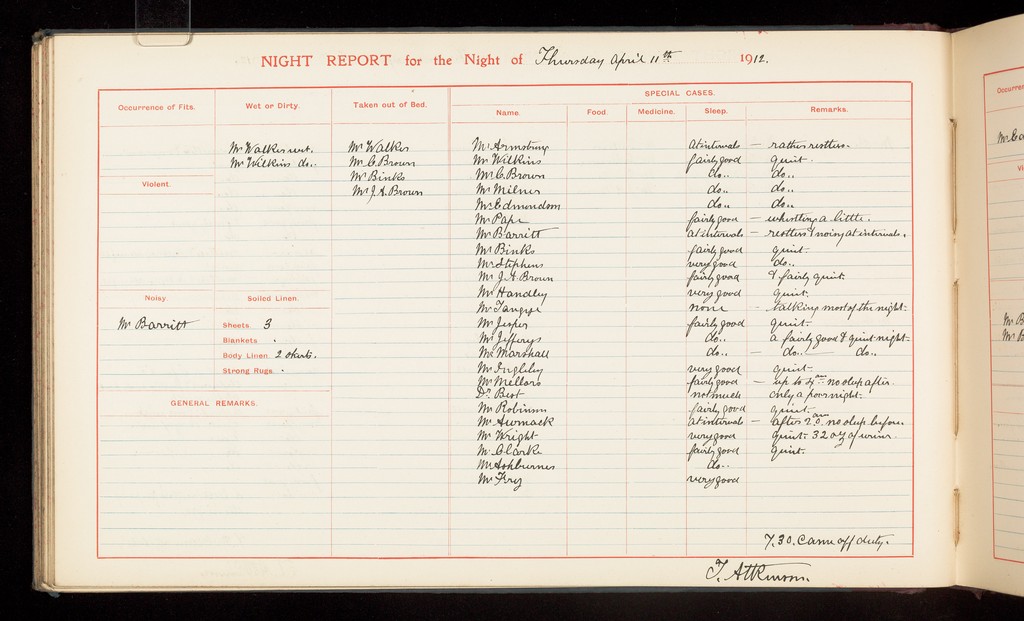 NIGHT REPORT for the Night of Thursday April 11th 1912.
Occurrence of Fits.
Wet or Dirty.
Mr Walker wet.
Mr Wilkins do..
Taken out of Bed.
Mr Walker
Mr C. Brown
Mr Binks
Mr J. A. Brown
Violent.
Noisy.
Mr Barritt
Soiled Linen.
Sheets 3
Blankets .
Body Linen 2 shirts.
Strong Rugs .
GENERAL REMARKS.
SPECIAL CASES.
Name. Food. Medicine. Sleep. Remarks.
Mr Armsbury At intervals – rather restless.
Mr Wilkins fairly good quiet.
Mr C. Brown do.. do..
Mr Milner do.. do..
Mr Edmondson do.. do..
Mr Pape fairly good – whistling a little.
Mr Barritt at intervals – restless & noisy at intervals.
Mr Binks fairly good quiet.
Mr Stephens very good do..
Mr J. A. Brown fairly good & fairly quiet.
Mr Handley very good quiet.
Mr Tangye none – talking most of the night.
Mr Jesper fairly good quiet.
Mr Jefferys do.. a fairly good & quiet night.
Mr Marshall do.. – do.. – do..
Mr Ingleby very good quiet.
Mr Mellors fairly good – up to 4 am no sleep after.
Dr Best not much only a poor night.
Mr Robinson fairly good quiet.
Mr Awmack at intervals – after 2.0 am no sleep before
Mr Wright very good quiet. 32 oz of urine.
Mr Clarke fairly good quiet.
Mr Ashburner do..
Mr Fry very good
7.30. Came off duty.
T. Atkinson.